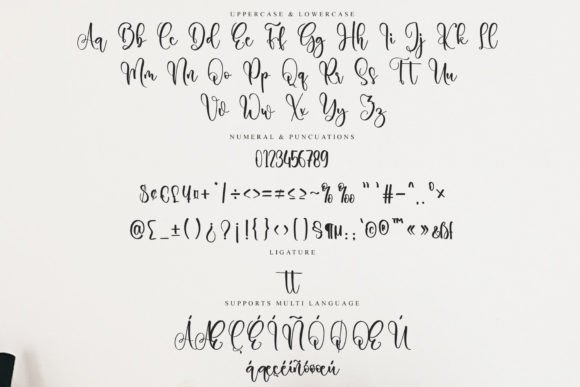 UPPERCASE & LOWERCASE
Aa Bb Cc Dd Ee Ff Gg Hh Ii Jj Kk Ll
Mm Nn Oo Pp Qq Rr Ss Tt Uu
Vv Ww Xx Yy Zz
NUMERAL & PUNCUATIONS
0123456789
$¢€£¥¤+*/÷<>=≠≤≥~%‰"'#-^.,°×
@{_±()¿?¡!{}‹›[]§¶µ:;'©®™«»&
LIGATURE
tt
SUPPORTS MULTI LANGUAGE
ÁÆÇÉÍÑÓØŒÚ
áæçéíñóøœú